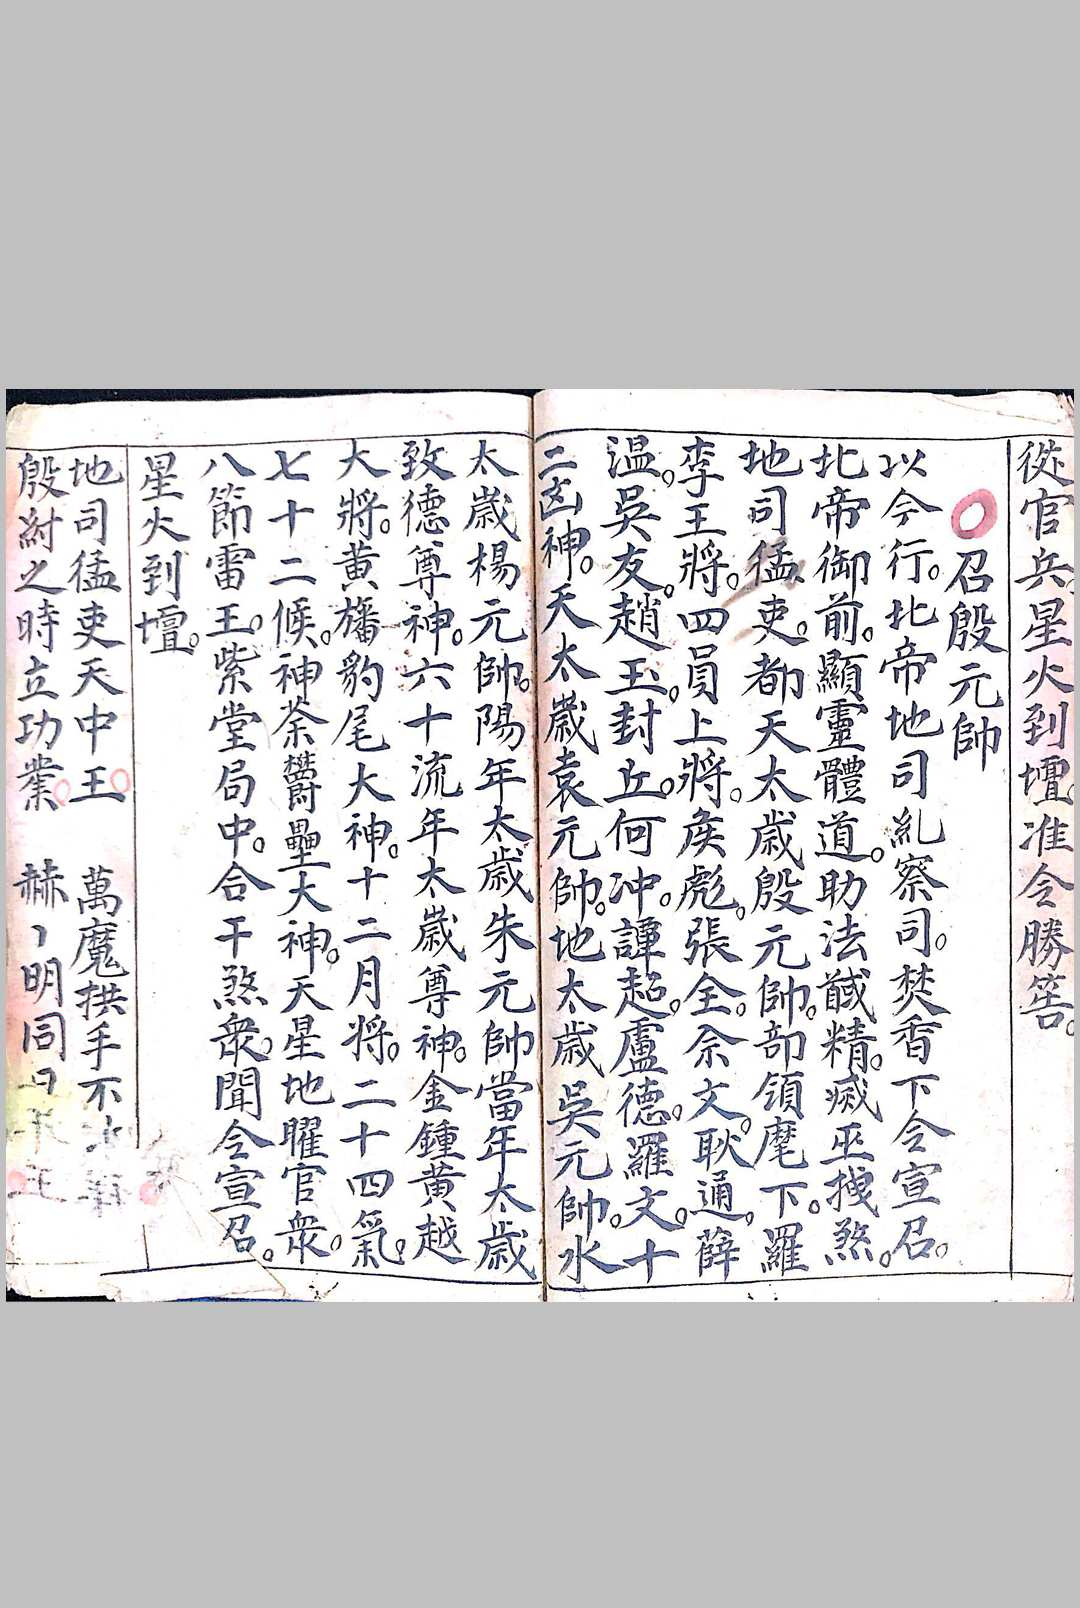 從官兵。星火到壇。准令勝筶。
○召殷元帥
以今行。北帝地司糺察司。焚香下令宣召。
北帝御前。顯靈體道。助法馘精。滅巫拽煞。
地司猛吏。都天太歲殷元帥。部領麾下。羅
李王將。四員上將。矦彪。張全。佘文。耿通。薛
温。吳友。趙玉。封丘。何冲。譚超。盧德。羅文。十
二凶神。天太歲袁元帥。地太歲吳元帥。水
太歲楊元帥。陽年太歲朱元帥當年太歲
致德尊神。六十流年太歲尊神。金鍾黄越
大將。黄旛豹尾大神。十二月將。二十四氣。
七十二候。神荼欝壘大神。天星地曜官衆。
八節雷王。紫堂局中。合干煞衆。聞令宣召。
星火到壇。
地司猛吏天中王。萬魔拱手不
殷紂之時立功業。赫丶明同日